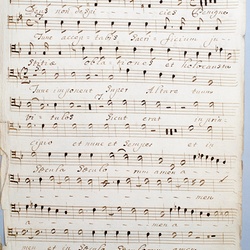 Deus non despi - cies Benigne
Tunc accep - tabis Sacri - ficium ju -
stitiæ oblationes et holocausta
Tunc imponent Super Altare tuum
vi - tulos Sicut erat in prin -
cipio et nunc et Semper et in
Sæcula Sæculo - rum amen a -
a - - - men
a - - - men
men et in Sæcula Sæculorum amen